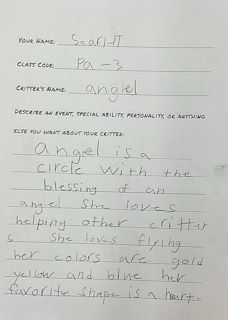 YOUR NAME: Scarlett
CLASS CODE: Pa-3
CRITTER'S NAME: angel
DESCRIBE AN EVENT, SPECIAL ABILITY, PERSONALITY, OR ANYTHING
ELSE YOU WANT ABOUT YOUR CRITTER:
angel is a
circle with the
blessing of an
angel She loves
helping other critter
s She loves flying
her colors are gold
yellow and blue her
favorite shape is a heart.